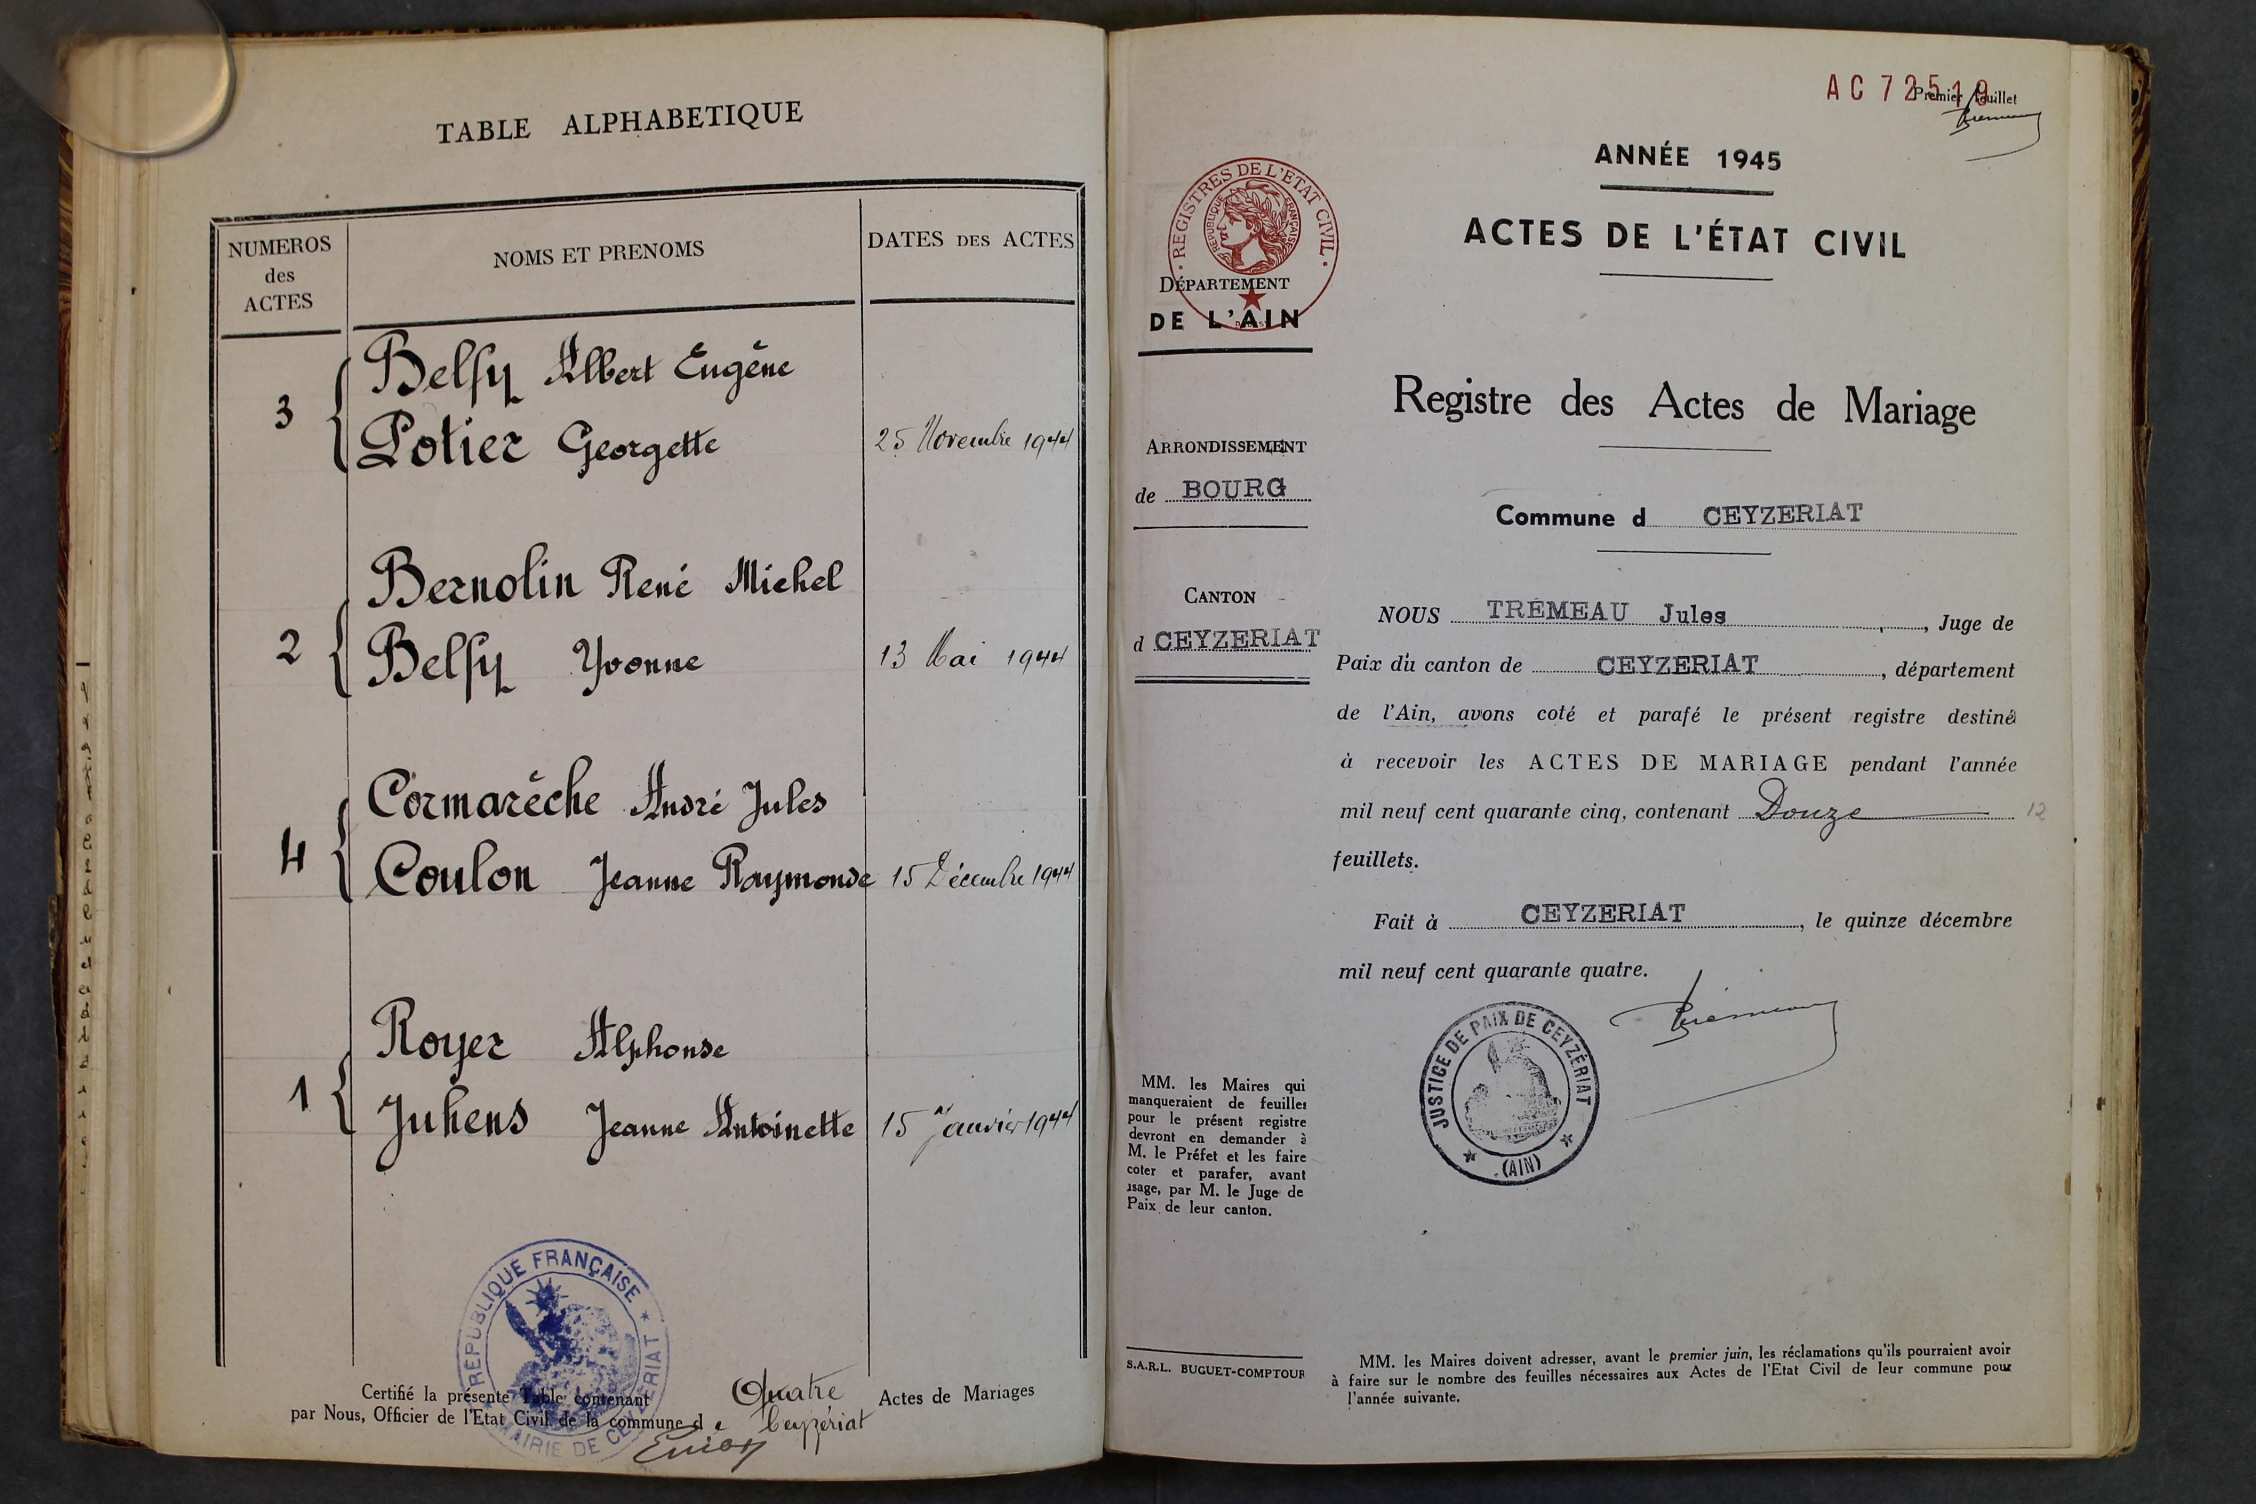 TABLE ALPHABETIQUE
NUMEROS
des
ACTES
NOMS ET PRENOMS
DATES DES ACTES
3
Belfy Albert Eugène
Potier Georgette
25 Novembre 1944
2
Bernolin René Michel
Belfy Yvonne
13 Mai 1944
4
Cormarèche André Jules
Coulon Jeanne Raymonde
15 Décembre 1944
1
Royer Alphonse
Juhens Jeanne Antoinette
15 Janvier 1944
RÉPUBLIQUE FRANÇAISE
MAIRIE DE CEYZERIAT
Certifié la présente Table contenant Quatre Actes de Mariages
par Nous, Officier de l'Etat Civil de la commune de Ceyzériat
AC 72519
Premier feuillet
ANNÉE 1945
ACTES DE L'ÉTAT CIVIL
REGISTRES DE L'ETAT CIVIL
REPUBLIQUE FRANÇAISE
DÉPARTEMENT
DE L'AIN
Registre des Actes de Mariage
ARRONDISSEMENT
de BOURG
Commune d CEYZERIAT
CANTON
d CEYZERIAT
NOUS TRÉMEAU Jules, Juge de
Paix du canton de CEYZERIAT, département
de l'Ain, avons coté et parafé le présent registre destiné
à recevoir les ACTES DE MARIAGE pendant l'année
mil neuf cent quarante cinq, contenant Douze 12
feuillets.
Fait à CEYZERIAT, le quinze décembre
mil neuf cent quarante quatre.
JUSTICE DE PAIX DE CEYZÉRIAT
(AIN)
MM. les Maires qui
manqueraient de feuilles
pour le présent registre
devront en demander à
M. le Préfet et les faire
coter et parafer, avant
usage, par M. le Juge de
Paix de leur canton.
S.A.R.L. BUGUET-COMPTOUR
MM. les Maires doivent adresser, avant le premier juin, les réclamations qu'ils pourraient avoir
à faire sur le nombre des feuilles nécessaires aux Actes de l'Etat Civil de leur commune pour
l'année suivante.